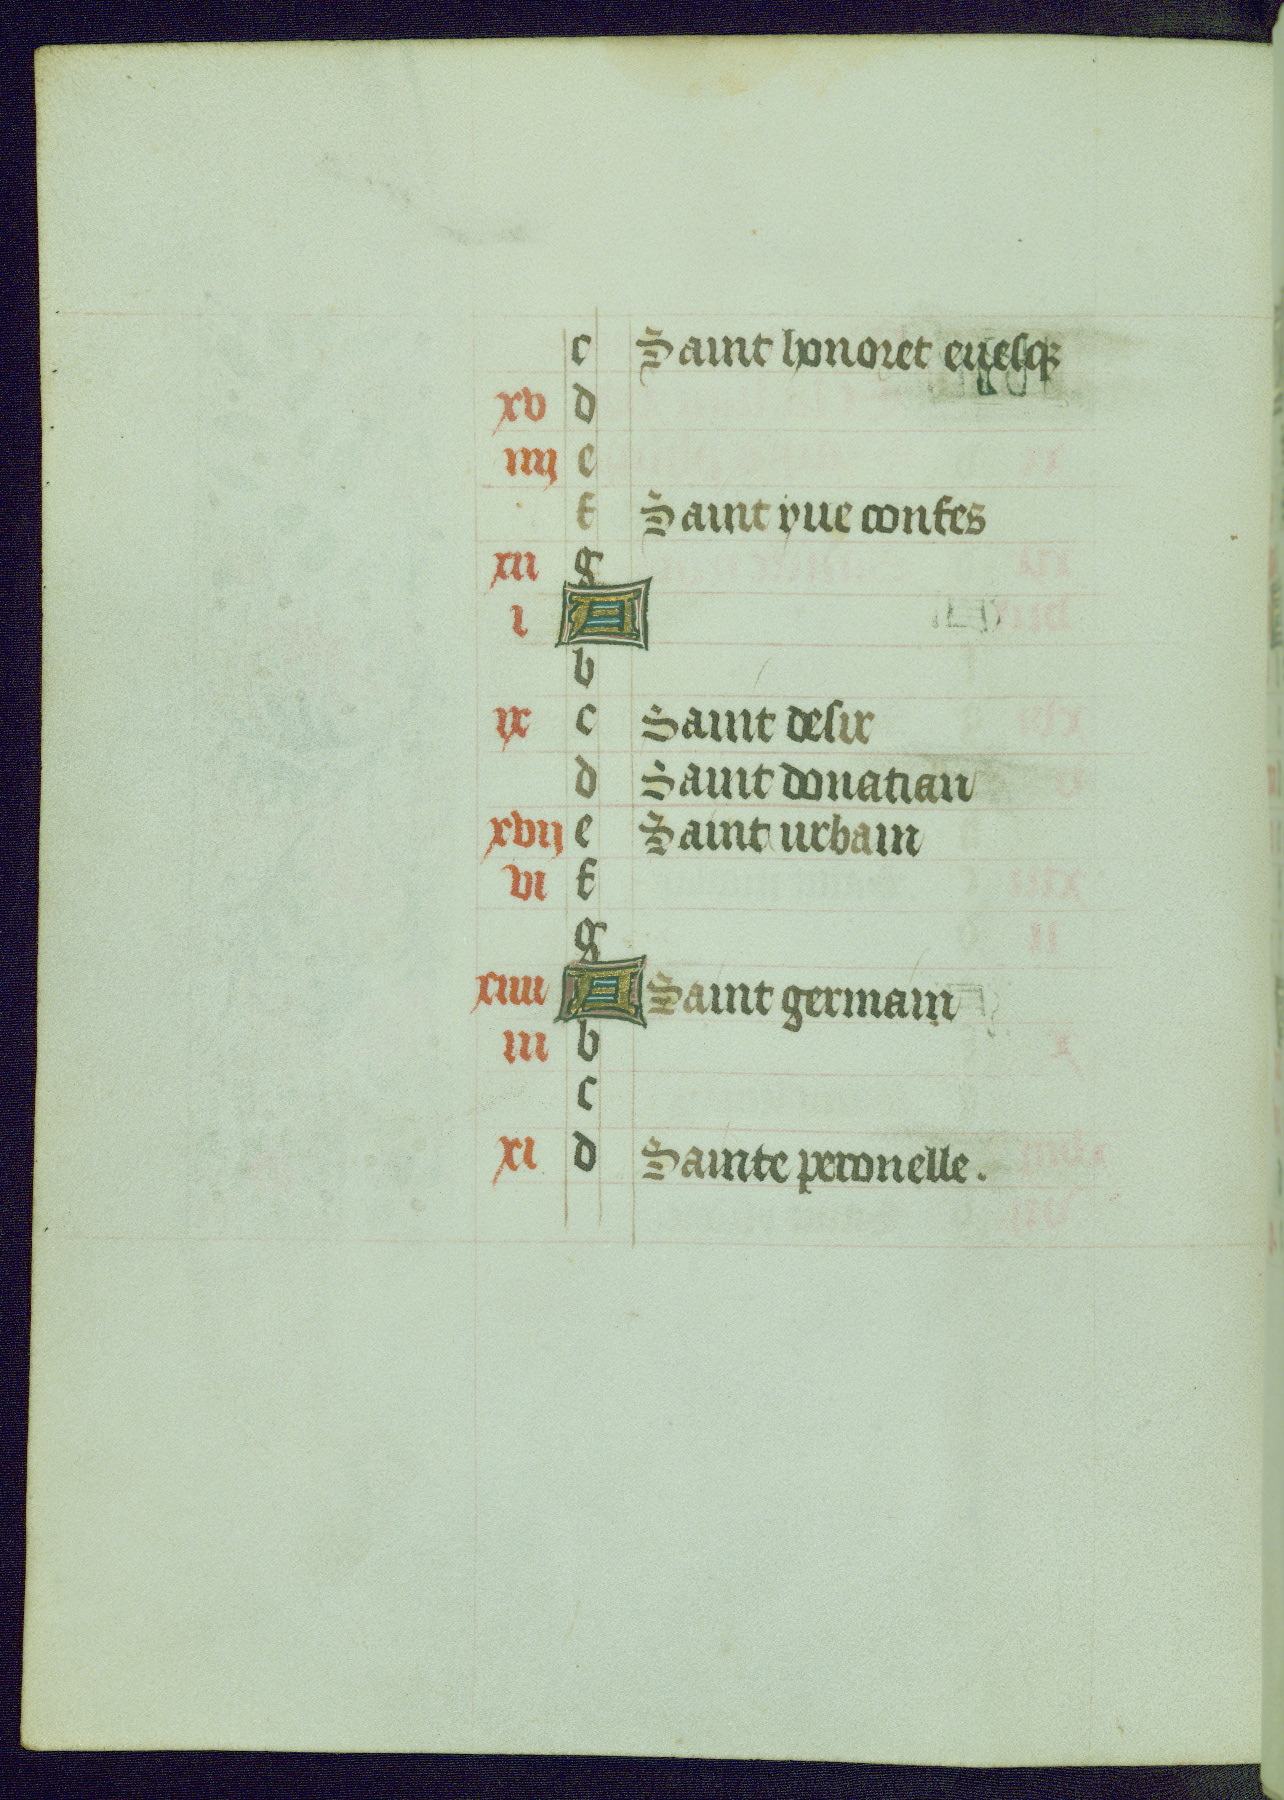 c Saint honoret euesq̃
xv d
iiij e
f Saint yue confes
xii g
i A
b
ix c Saint desir
d Saint donatian
xvij e Saint urbain
vi f
g
xiiii A Saint germain
iii b
c
xi d Sainte peronelle.